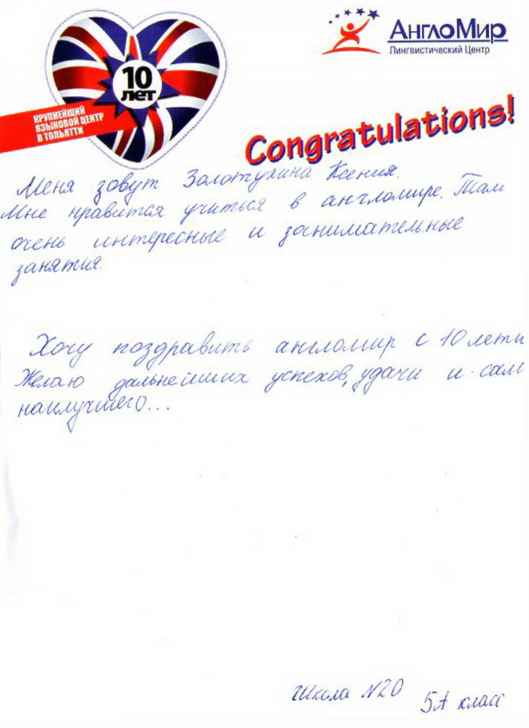 10
ЛЕТ
КРУПНЕЙШИЙ
ЯЗЫКОВОЙ ЦЕНТР
В ТОЛЬЯТТИ
АнглоМир
Лингвистический Центр
Congratulations!
Меня зовут Золотухина Ксения.
Мне нравится учится в англомире. Там
очень интересные и занимательные
занятия.
Хочу поздравить англомир с 10 лети
Желаю дальнейших успехов, удачи и сам
наилучшего...
Школа №20 5А класс